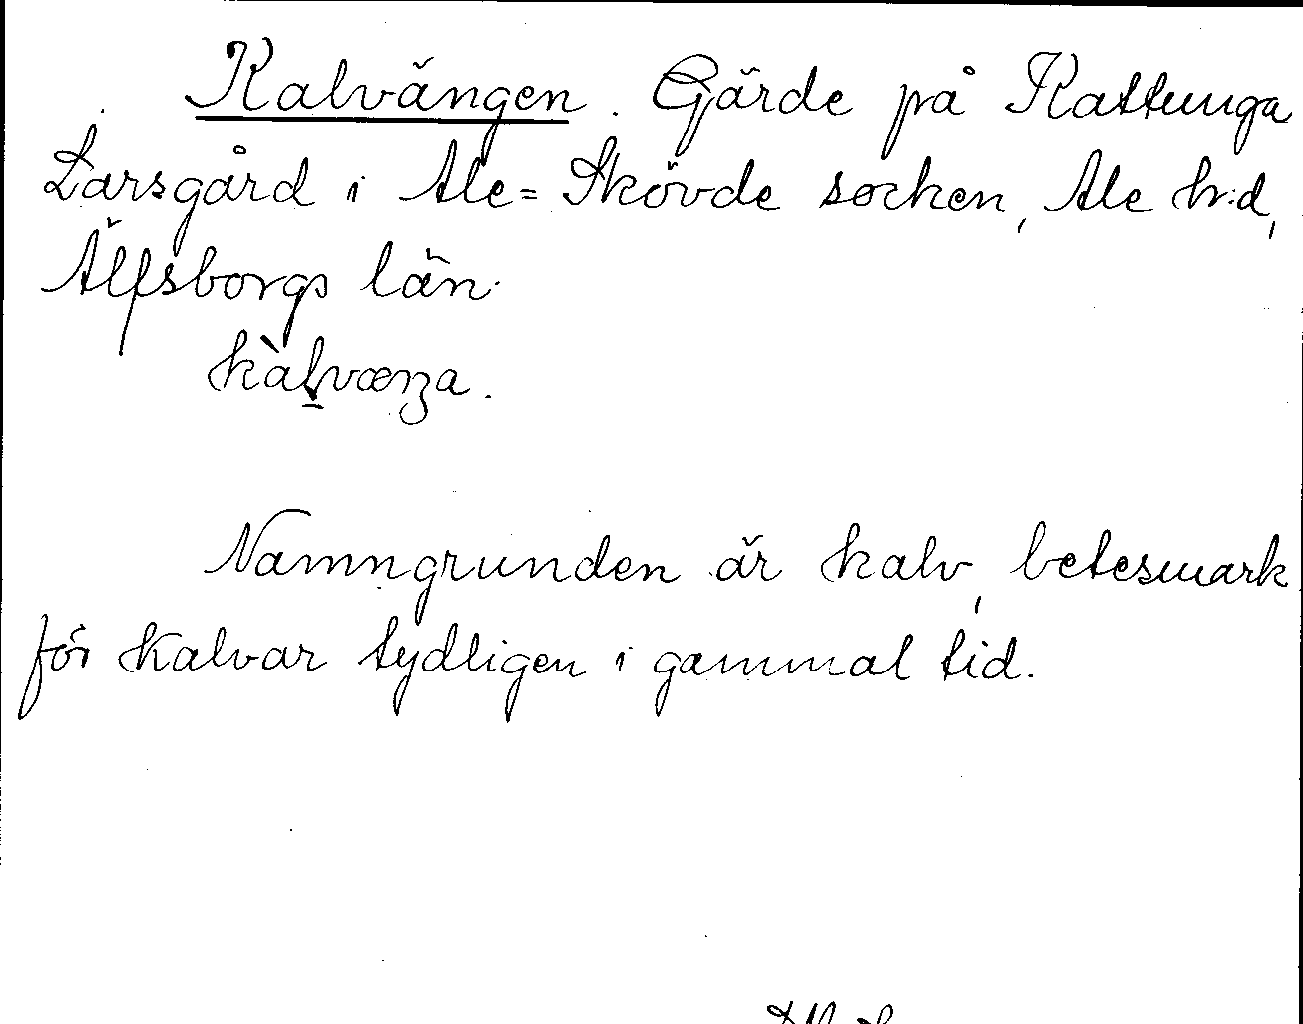 Kalvängen. Gärde på Kattunga
Larsgård i Ale=Skövde socken, Ale hr:d,
Älfsborgs län.
kàlvæŋa.
Namngrunden är kalv, betesmark
för kalvar tydligen i gammal tid.